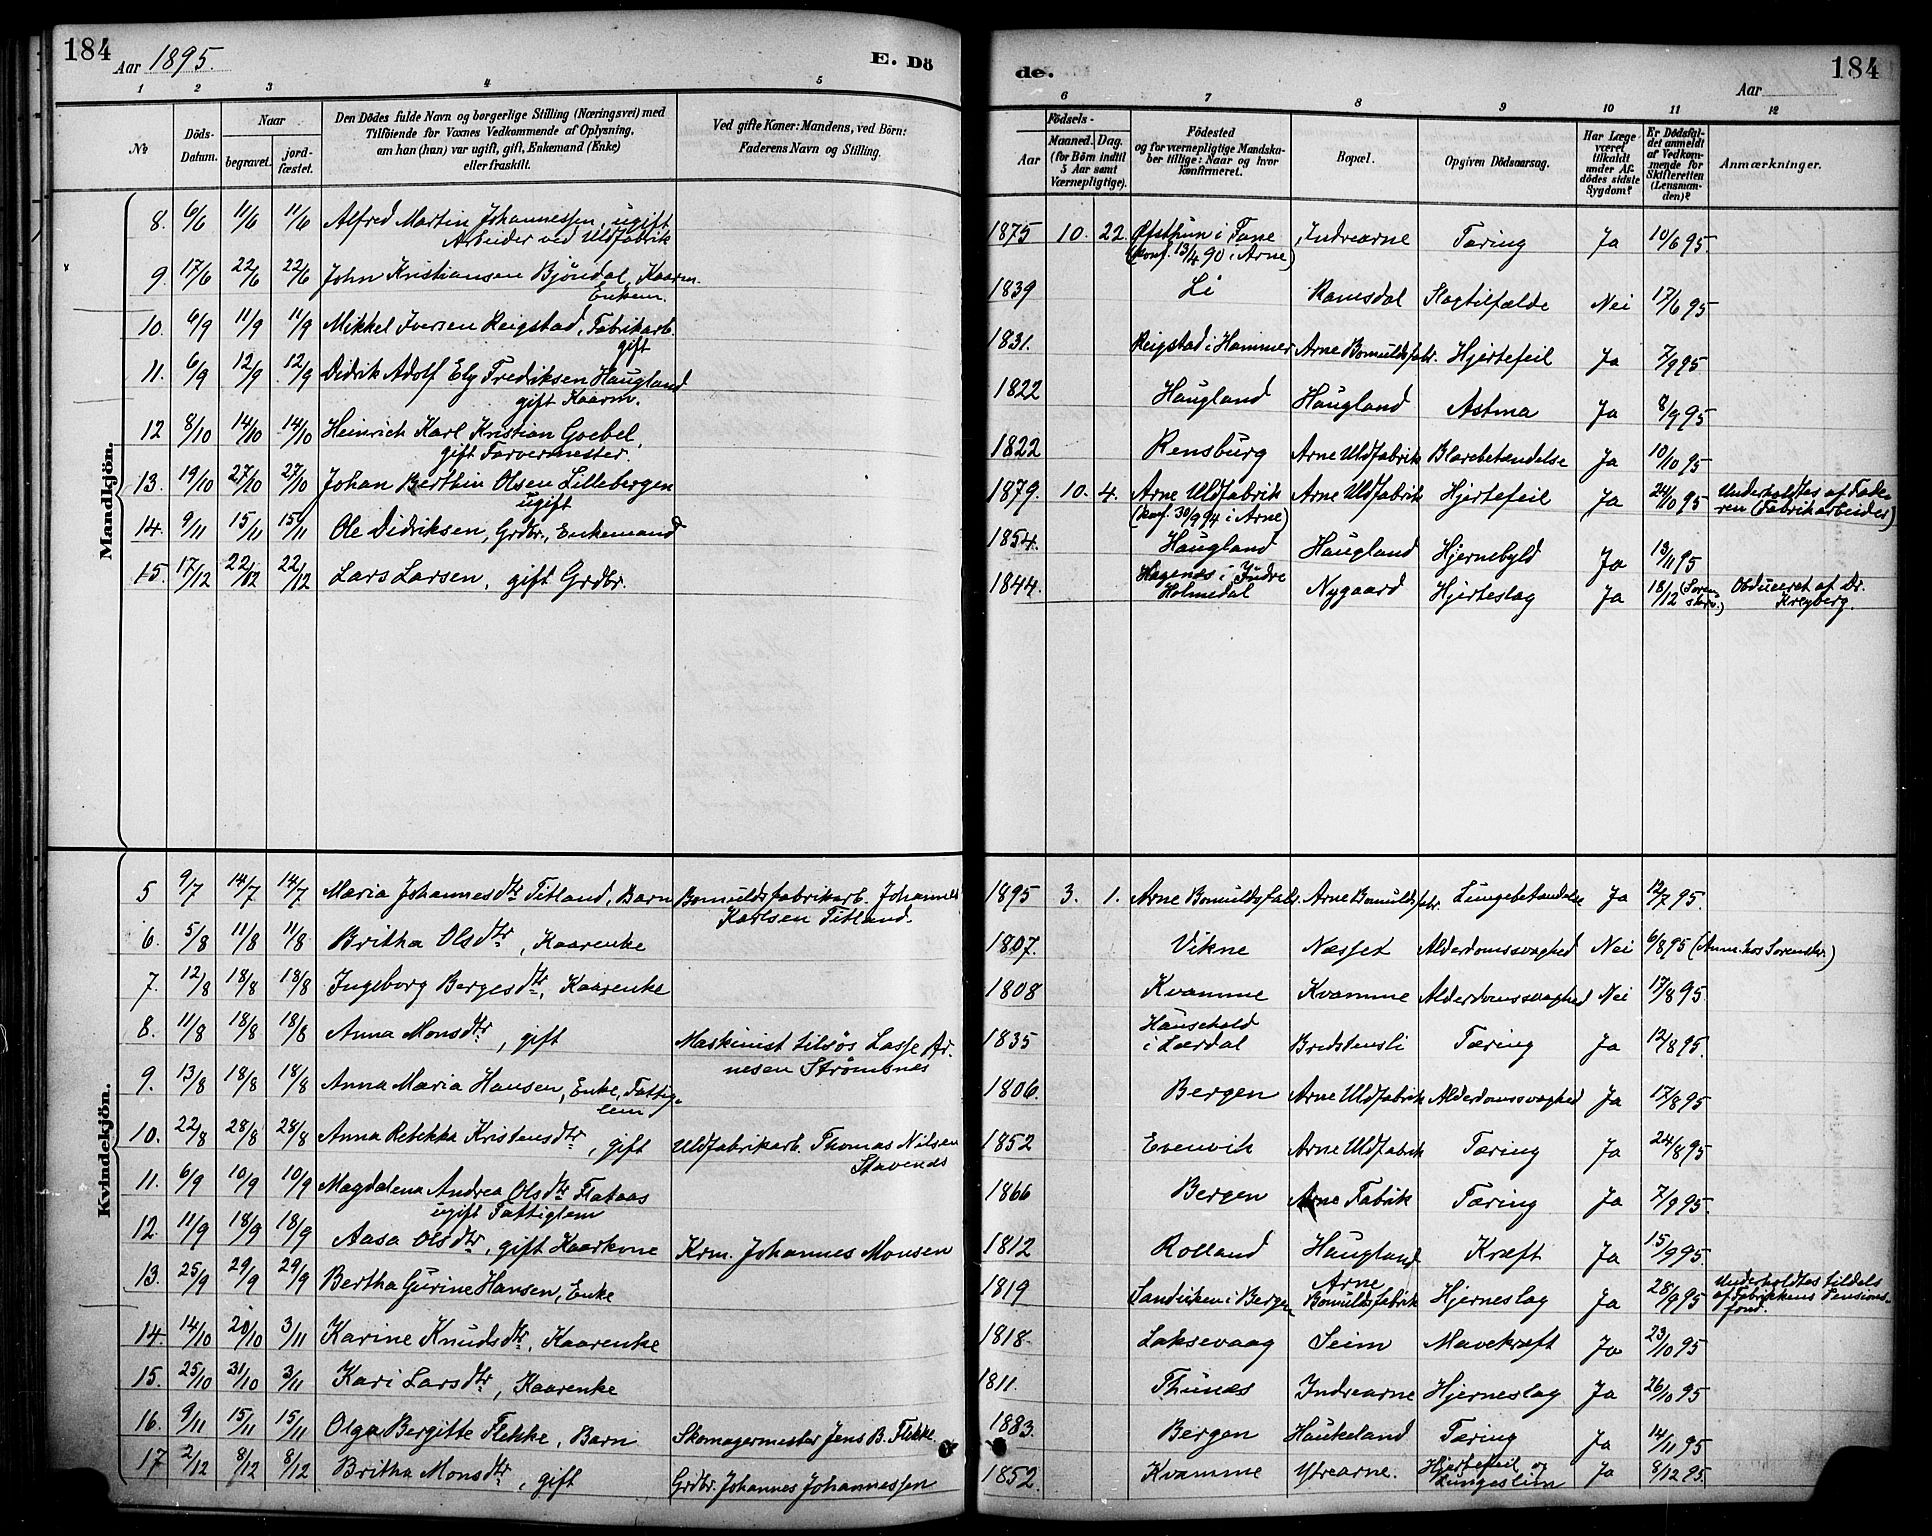 184
Aar 1895.
E. Dö
1 2 3 4 5
No
Döds-Datum.
Naar
begravet.
jord-fæstet.
Den Dödes fulde Navn og borgerlige Stilling (Næringsvei) med
Tilföiende for Voxnes Vedkommende af Oplysning,
om han (hun) var ugift, gift, Enkemand (Enke)
eller fraskilt.
Ved gifte Koner: Mandens, ved Börn:
Faderens Navn og Stilling.
Mandkjön.
8. 6/6 11/6 11/6 Alfred Martin Johannessen, ugift
Arbeider ved Uldfabrik
9. 17/6 22/6 22/6 John Kristiansen Bjöndal, Kaarm.
Enkem.
10. 6/9 11/9 11/9 Mikkel Iversen Reigstad, Fabrikarb.
gift
11. 6/9 12/9 12/9 Didrik Adolf Ely Fredriksen Haugland
gift Kaarm.
12 8/10 14/10 14/10 Heinrich Karl Kristian Goebel,
gift Farvermester.
13. 19/10 27/10 27/10 Johan Berthin Olsen Lillebergen
ugift
14. 9/11 15/11 15/11 Ole Didriksen, Grdbr., Enkemand
15. 17/12 22/12 22/12 Lars Larsen, gift Grdbr.
Kvindekjön.
5 9/7 14/7 14/7 Maria Johannesdtr Titland, Barn Bomuldsfabrikarb. Johannes
Karlsen Titland.
6. 5/8 11/8 11/8 Britha Olsdtr, Kaarenke
7. 12/8 18/8 18/8 Ingeborg Bergesdtr, Kaarenke
8. 11/8 18/8 18/8 Anna Monsdtr, gift Maskinist tilsös Lasse Ar-
nesen Strömsnes
9. 13/8 18/8 18/8 Anna Maria Hansen, Enke, Fattig-
lem
10. 22/8 28/8 28/8 Anna Rebekka Kristensdtr, gift Uldfabrikarb. Thomas Nilsen
Stavenes
11. 6/9 10/9 10/9 Magdalena Andrea Olsdtr Flataas
ugift Fattiglem
12. 11/9 18/9 18/9 Aasa Olsdtr, gift Kaarkone Krm. Johannes Monsen
13. 25/9 29/9 29/9 Bertha Gurine Hansen, Enke
14. 14/10 20/10 3/11 Karine Knudsdtr, Kaarenke
15. 25/10 31/10 3/11 Kari Larsdtr, Kaarenke
16. 9/11 15/11 15/11 Olga Bergitte Flekke, Barn Skomagermester Jens B. Flekke.
17 2/12 8/12 8/12 Britha Monsdtr, gift Grdbr. Johannes Johannessen
de.
184
Aar
6 7 8 9 10 11 12
Födsels-
Aar
Maaned. Dag.
(for Börn indtil
5 Aar samt
Værnepligtige).
Födested
og for værnepligtige Mandska-
ber tillige: Naar og hvor
konfirmeret.
Bopæl.
Opgiven Dödsaarsag.
Har Læge
været
tilkaldt
under Af-
dödes sidste
Sygdom?
Er Dödsfal-
det anmeldt
af Vedkom-
mende for
Skifteretten
(Lensman-
den)?
Anmærkninger.
1875 10. 22. Öfsthun i Fane Indrearne Tæring Ja 10/6 95
(konf. 13/4 90 i Arne)
1839 Li Ramsdal Slagtilfælde Nei 17/6 95
1831. Reigstad i Hammer Arne Bomuldsfabr. Hjertefeil Ja 7/9 95
1822 Haugland Haugland Astma Ja 8/9 95
1822 Rensburg Arne Uldfabrik Blærebetændelse Ja 10/10 95
1879. 10. 4. Arne Uldfabrik Arne Uldfabrik Hjertefeil Ja 24/10 95 Underholdtes af Fade-
(konf. 30/9 94 i Arne) ren (Fabrikarbeider)
1854. Haugland Haugland Hjernebyld Ja 13/11 95
1844. Hagenæs i Indre
Holmedal Nygaard Hjerteslag Ja 18/12 (Soren-
skriv.) Obduceret af Dr.
Kreyberg.
1895 3. 1. Arne Bomuldsfabr. Arne Bomuldsfabr. Lungebetændelse Ja 12/7 95.
1807. Vikne Næsset Alderdomssvaghed Nei 6/8 95 (Anm. hos Sorenskr.)
1808 Kvamme Kvamme Alderdomssvaghed Nei 17/8 95
1835 Haukehold
i Lærdal Bredstensli Tæring Ja 12/8 95.
1806. Bergen Arne Uldfabrik Alderdomssvaghed Ja 17/8 95
1852 Evenvik Arne Uldfabrik Tæring Ja 24/8 95
1866 Bergen Arne Fabrik Tæring Ja 7/9 95
1812 Rolland Haugland Kræft Ja 15/9 95.
1819 Sandviken i Bergen Arne
Bomuldsfabrik Hjerneslag Ja 28/9 95 Underholdtes tildels
af Fabrikkens Pensions-
fond.
1818. Laksevaag Seim Mavekræft Ja 23/10 95
1811. Thunæs Indrearne Hjerneslag Ja 26/10 95
1883. Bergen Haukeland Tæring Ja 14/11 95
1852. Kvamme Ytrearne. Hjertefeil og
Lungeslim Ja 8/12 95.